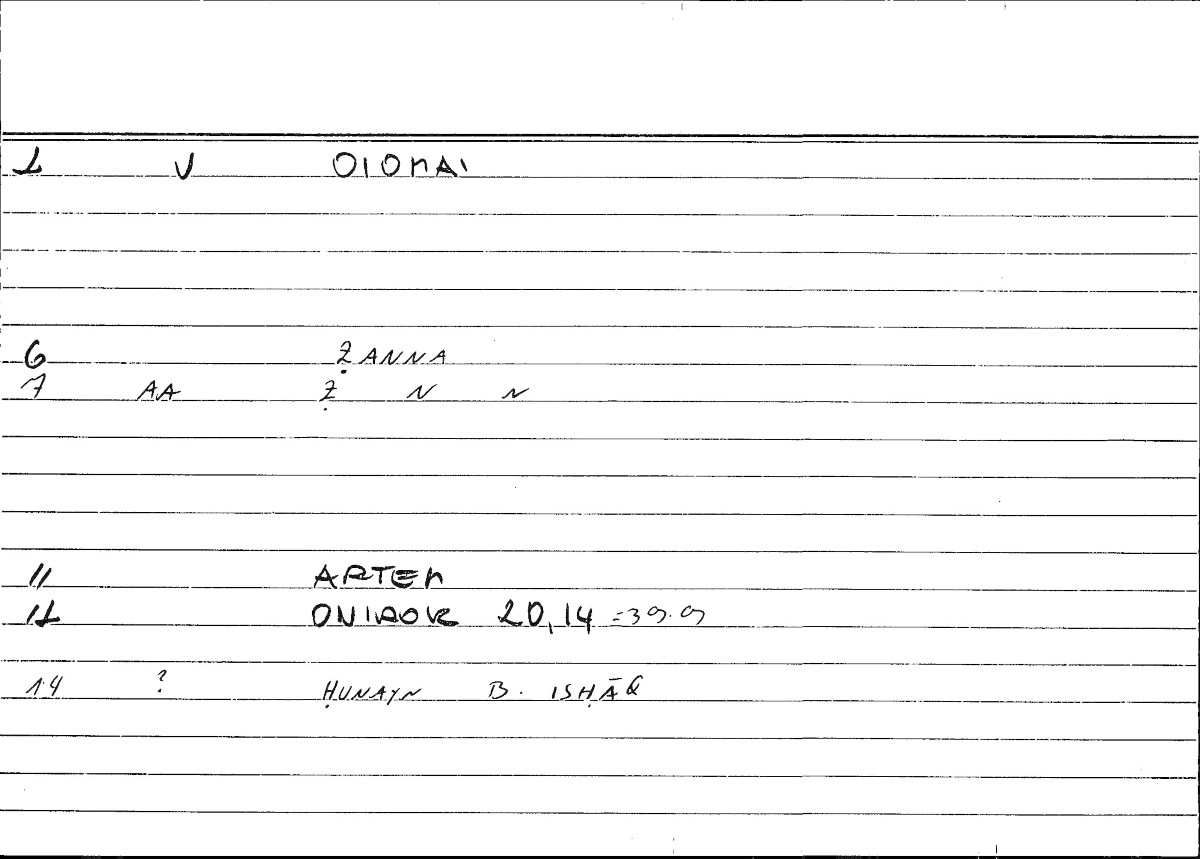 2 V OIOMAI
6 ẒANNA
7 AA Ẓ N N
11 ARTEM
12 ONIROK 20,14 =39.9
14 ? ḤUNAYN B. ISḤĀQ